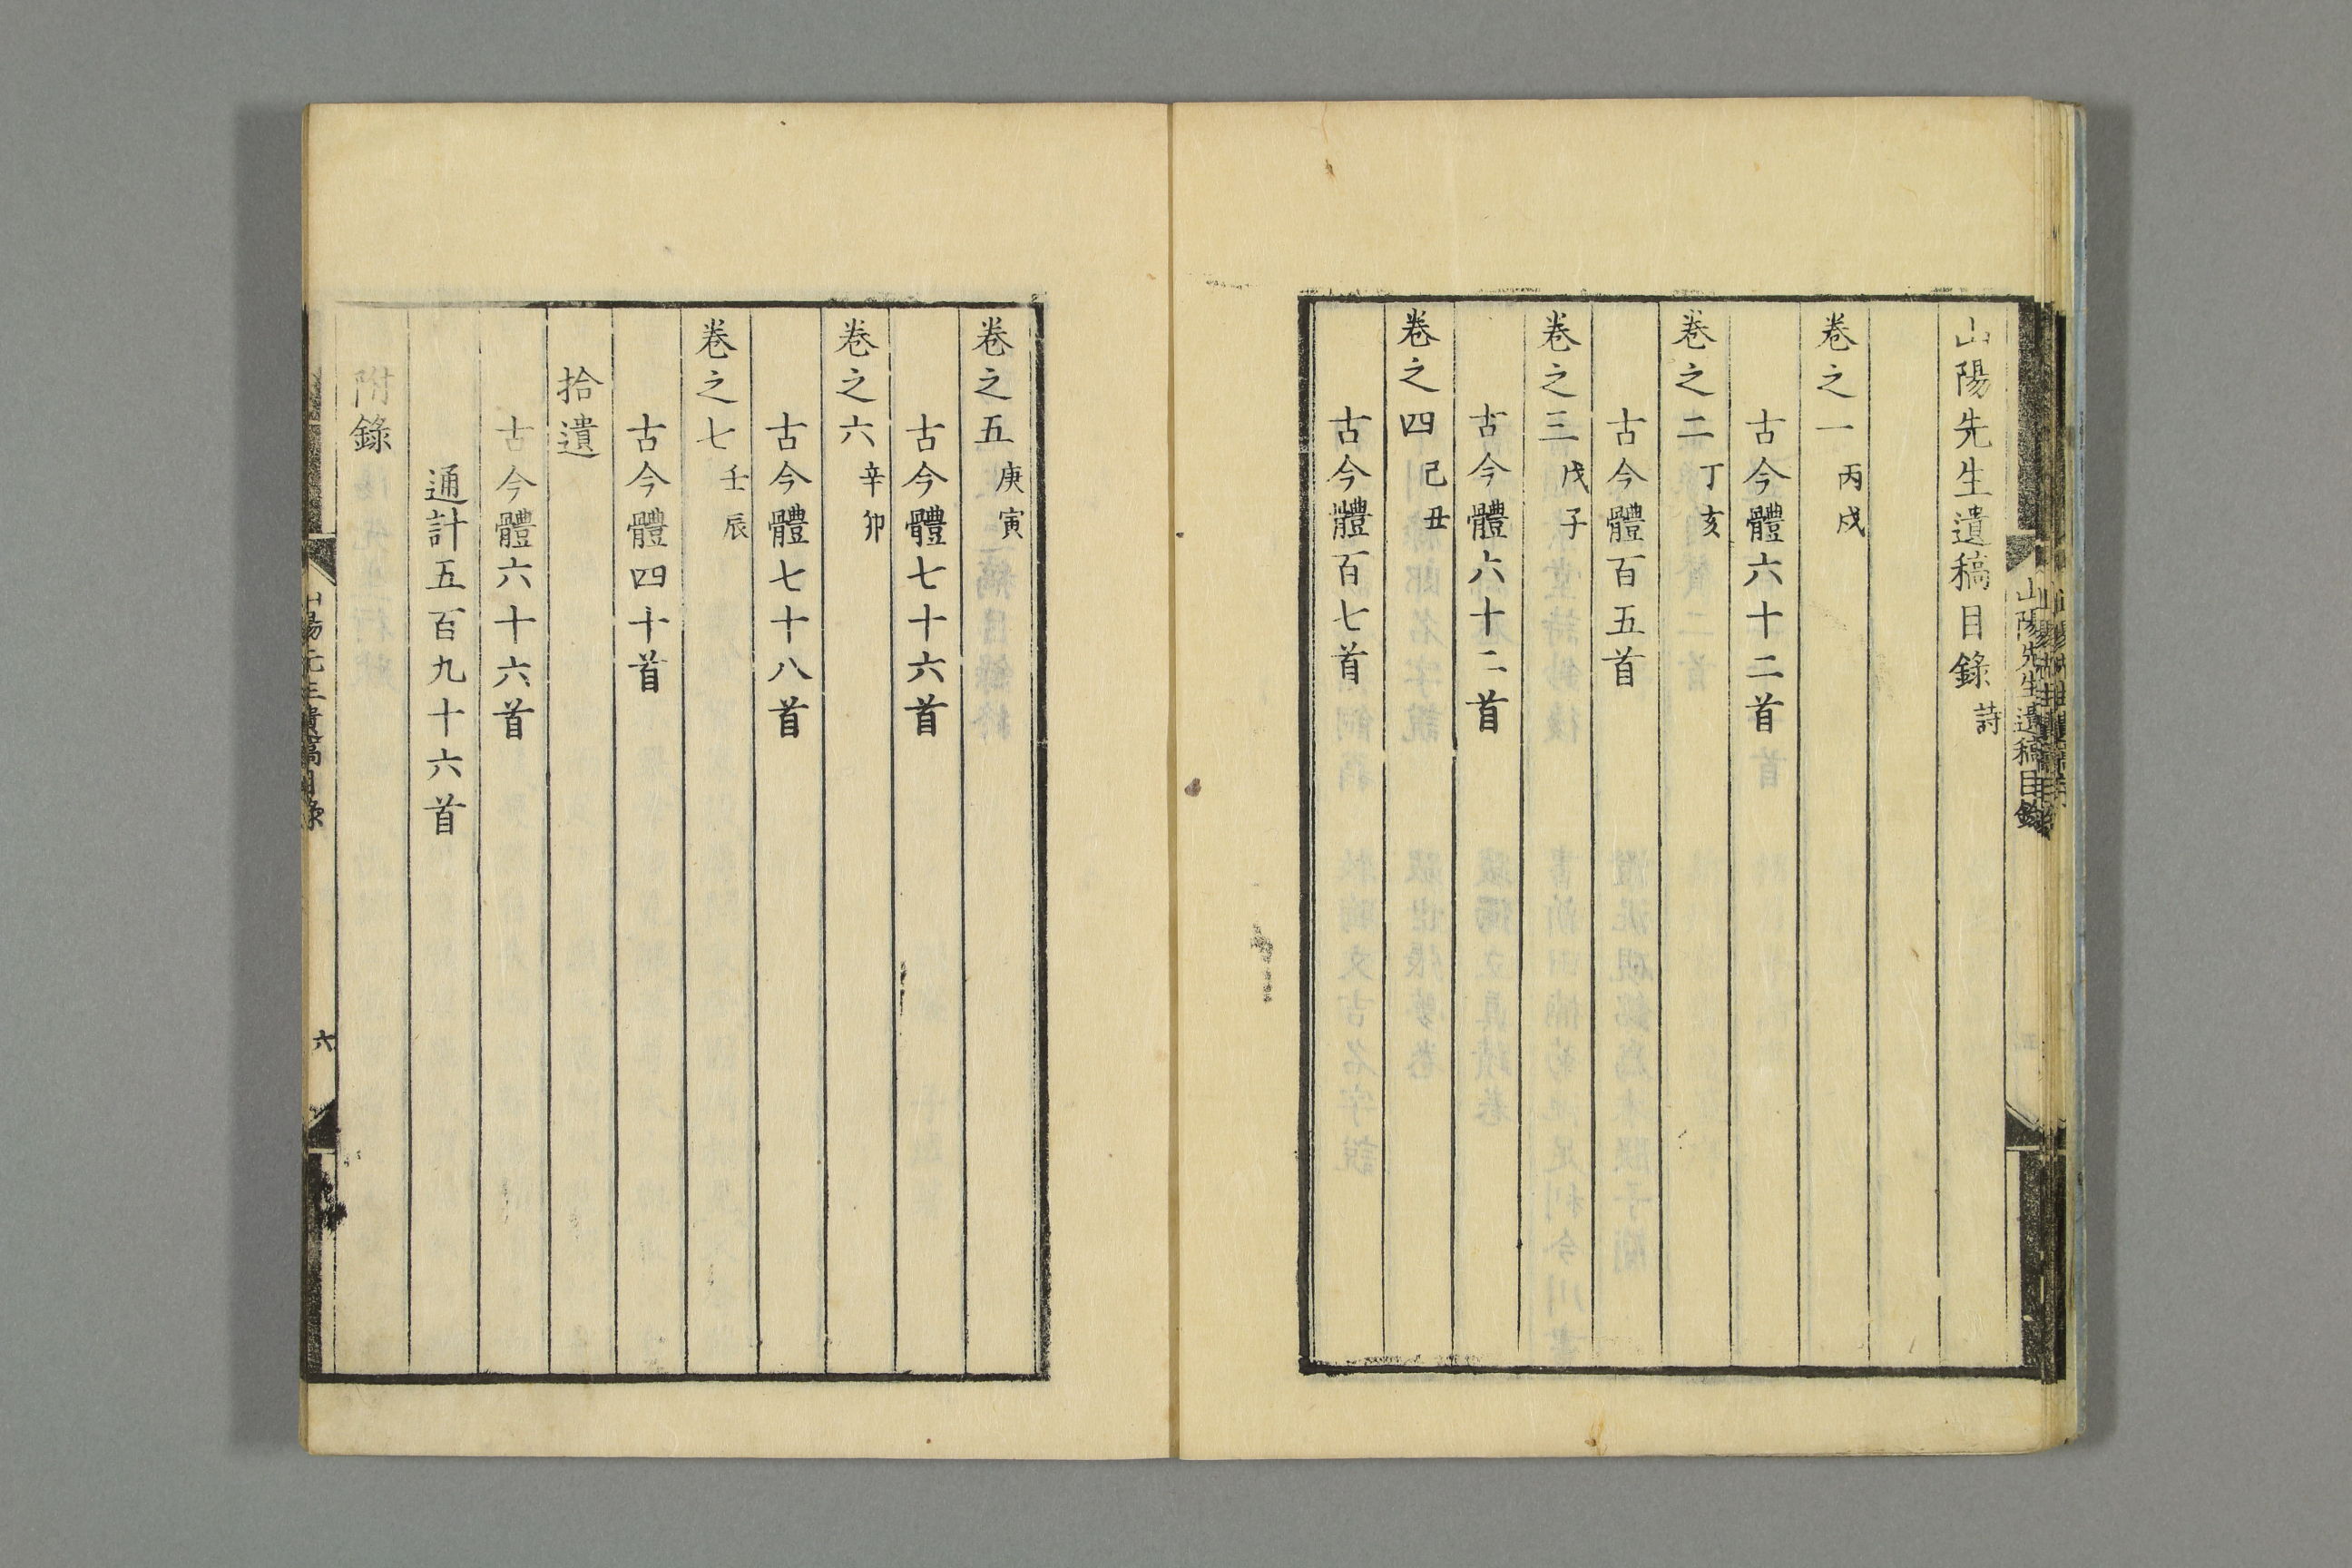 山陽先生遺稿目錄 詩
卷之一 丙戌
古今體六十二首
卷之二 丁亥
古今體百五首
卷之三 戊子
古今體六十二首
卷之四 己丑
古今體百七首
卷之五 庚寅
古今體七十六首
卷之六 辛卯
古今體七十八首
卷之七 壬辰
古今體四十首
拾遺
古今體六十六首
通計五百九十六首
附錄
山陽先生遺稿目錄
六